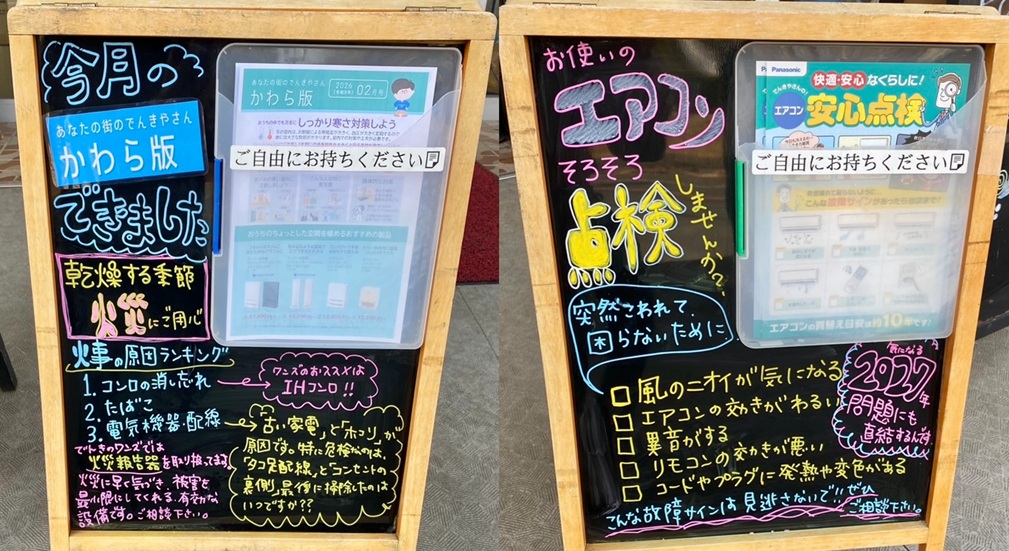 今月の
あなたの街のでんきやさん
かわら版
できました
乾燥する季節
火災にご用心
火事の原因ランキング
1. コンロの消し忘れ
2. たばこ
3. 電気機器・配線
ワンズのおススメは
IHコンロ!!
「古い家電」と「ホコリ」が
原因です。特に危険なのは、
「タコ足配線」と「コンセントの
裏側」最後に掃除したのは
いつですか??
でんきのワンズでは
火災報告器を取り扱ってます。
火災に早く気づき、被害を
最小限にしてくれる、有効な
設備です。ご相談下さい。
あなたの街のでんきやさん
かわら版
2026
02月号
しっかり寒さ対策しよう
ご自由にお持ちください
おうちのちょっとした空間を暖めるおすすめの製品
お使いの
エアコン
そろそろ
点検
しませんか?
突然こわれて、
困らないために
風のニオイが気になる
エアコンの効きがわるい
異音がする
リモコンの効きが悪い
コードやプラグに発熱や変色がある
こんな故障サインは見逃さないで!!ぜひ
ご相談下さい。
気になる
2027年
問題にも
直結するんです
Panasonic
快適・安心なくらしに!
でんきやさんの!
エアコン安心点検
ご自由にお持ちください
こんな故障サインがあったら当店まで!
エアコンの買替え目安は約10年です!